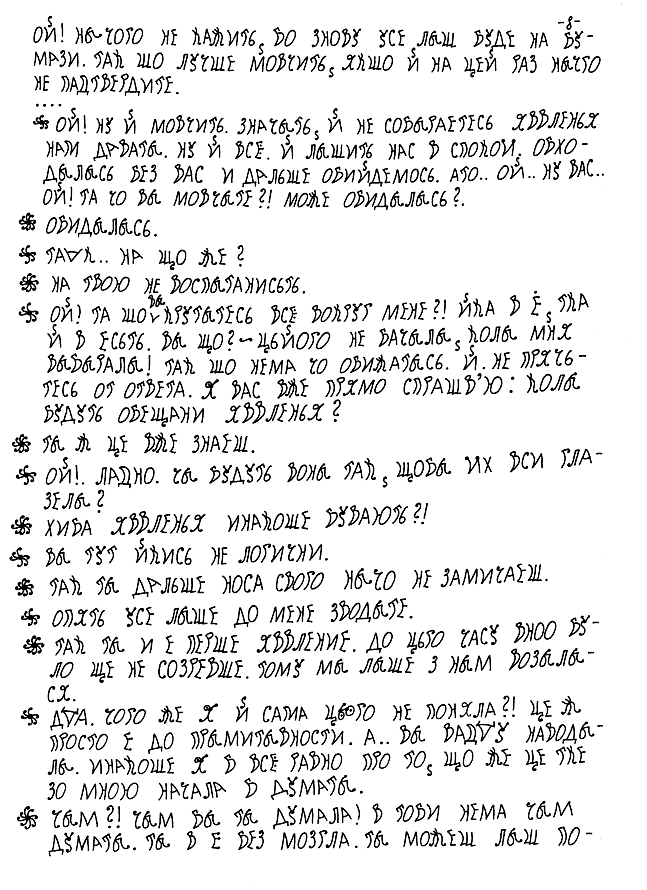 -8-
ОЙ! НЫЧОГО НЕ КАЖИТЬ, БО ЗНОВУ УСЕ ЛЫШ БУДЕ НА БУ-
МАЗИ. ТАК ШО ЛУЧШЕ МОВЧИТЬ, ЯКШО Й НА ЦЕЙ РАЗ НЫЧГО
НЕ ПАДТВЕРДИТЕ.
....
ОЙ! НУ Й МОВЧИТЬ. ЗНАЧЫТЬ, Й НЕ СОБЫРАЕТЕСЬ ЯВВЛЕНЬЯ
НАМ ДРВАТЫ. НУ Й ВСЕ. Й ЛЫШИТЬ НАС В СПОКОИ. ОБХО-
ДЫЛЫСЬ БЕЗ ВАС И ДРЛЬШЕ ОБИЙДЕМОСЬ. АТО.. ОЙ.. НУ ВАС..
ОЙ! ТА ЧО ВЫ МОВЧЫТЕ?! МОЖЕ ОБИДЫЛЫСЬ?.
ОБИДЫЛЫСЬ.
ТАК.. НА ЩО ЖЕ?
НА ТВОЮ НЕ ВОСПЫТАНИСЬТЬ.
ОЙ! ТА ШО ВЫ КРУТЫТЕСЬ ВСЕ ВОКРУГ МЕНЕ?! ЙКА В Е, ТКА
Й В ЕСЬТЬ. ВЫ ЩО? ЦЬЙОГО НЕ БАЧЫЛЫ, КОЛЫ МНЯ
ВЫБЫРАЛЫ! ТАК ШО НЕМА ЧО ОБИЖАТЫСЬ. Й. НЕ ПРЯЧЬ-
ТЕСЬ ОТ ОТВЕТА. Я ВАС ВЖЕ ПРЯМО СПРАШВ'Ю: КОЛЫ
БУДУТЬ ОБЕЩАНИ ЯВВЛЕНЬЯ?
ТЫ Ж ЦЕ ВЖЕ ЗНАЕШ.
ОЙ!. ЛАДНО. ЧЫ БУДУТЬ ВОНЫ ТАК, ЩОБЫ ИХ ВСИ ГЛА-
ЗЕЛЫ?
ХИБА ЯВВЛЕНЬЯ ИНАКОШЕ БУВАЮТЬ?!
ВЫ ТУТ ЙКИСЬ НЕ ЛОГИЧНИ.
ТАК ТЫ ДРЛЬШЕ НОСА СВОГО НЫЧО НЕ ЗАМИЧАЕШ.
ОПЯТЬ УСЕ ЛЫШЕ ДО МЕНЕ ЗВОДЫТЕ.
ТАК ТЫ И Е ПЕРШЕ ЯВВЛЕНИЕ. ДО ЦЬГО ЧАСУ ВНОО БУ-
ЛО ЩЕ НЕ СОЗРЕВШЕ. ТОМУ МЫ ЛЫШЕ З НЫМ ВОЗЫЛЫ-
СЯ.
ЧОГО ЖЕ Я Й САМА ЦЬОГО НЕ ПОНЯЛА?! ЦЕ Ж
ПРОСТО Е ДО ПРЫМИТЫВНОСТИ. А.. ВЫ НАВОДЫ-
ЛЫ. ИНАКОШЕ Я В ВСЕ РАВНО ПРО ТО, ЩО ЖЕ ЦЕ ТКЕ
ЗО МНОЮ НАЧАЛА В ДУМАТЫ.
ЧЫМ?! ЧЫМ ВЫ ТЫ ДУМАЛА! В ТОБИ НЕМА ЧЫМ
ДУМАТЫ. ТЫ В Е БЕЗ МОЗГЛА. ТЫ МОЖЕШ ЛЫШ ПО-